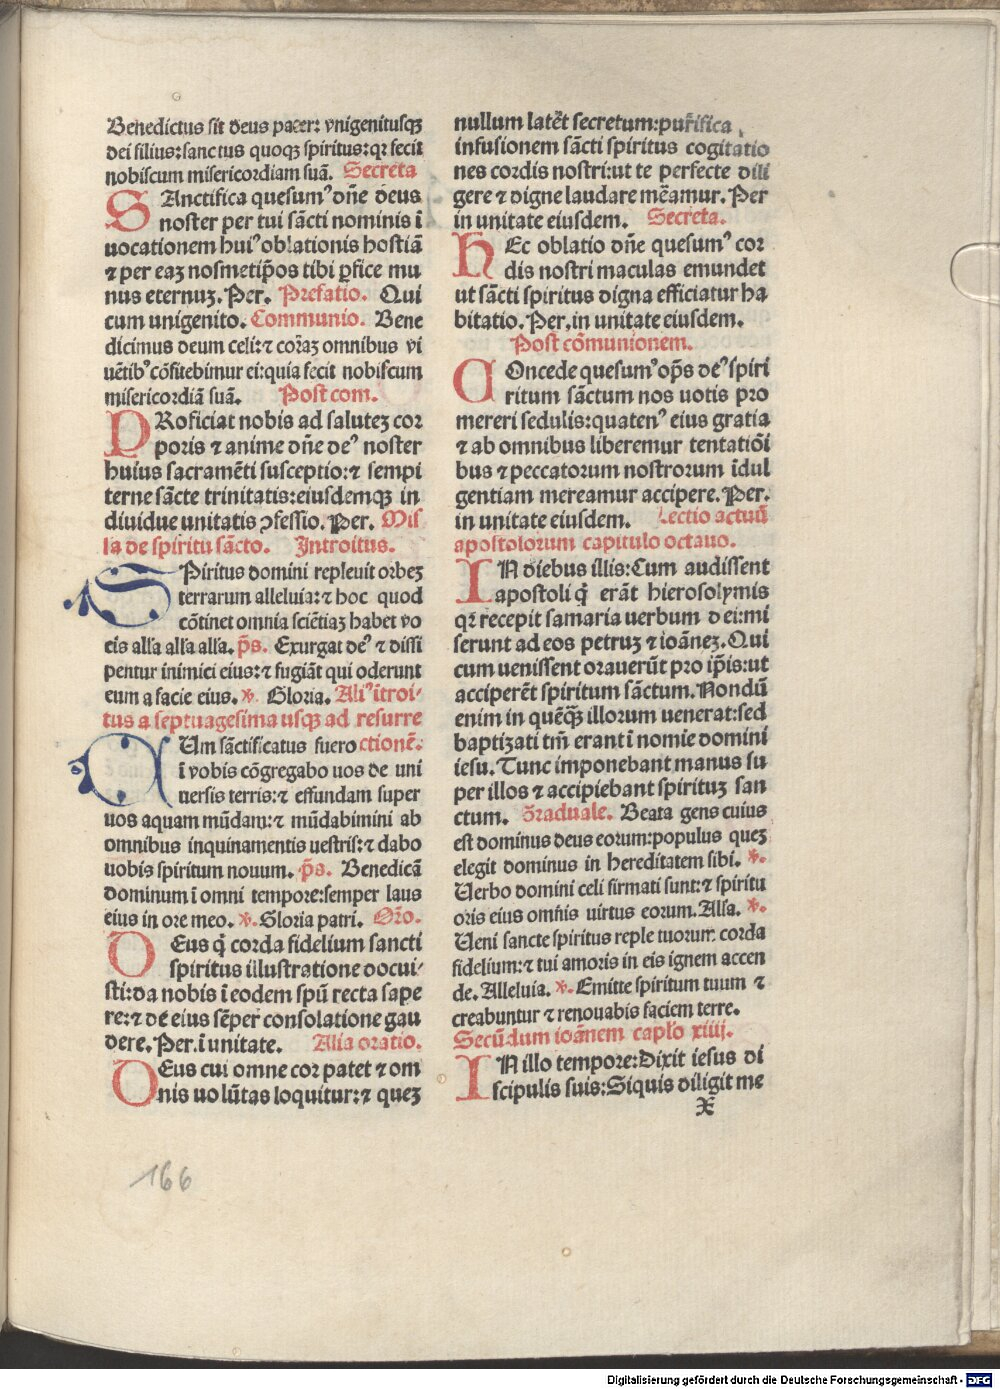 Benedictus sit deus pater: vnigenitusqꝫ
dei filius: sanctus quoqꝫ spiritus: qꝛ fecit
nobiscum misericordiam suā. Secreta
SAnctifica quesumꝰ dn̄e deus
noster per tui sācti nominis ī
uocationem huiꝰ oblationis hostiā
⁊ per eaꝫ nosmetip̄os tibi ꝑfice mu
nus eternuꝫ. Per. Prefatio. Qui
cum unigenito. Communio. Bene
dicimus deum celi: ⁊ coraꝫ omnibus vi
uētibꝰ cōfitebimur ei: quia fecit nobiscum
misericordiā suā. Post com.
PRoficiat nobis ad saluteꝫ cor
poris ⁊ anime dn̄e deꝰ noster
huius sacramēti susceptio: ⁊ sempi
terne sācte trinitatis: eiusdemqꝫ in
diuidue unitatis ꝯfessio. Per. Mis
sa de spiritu sācto. Introitus.
SPiritus domini repleuit orbeꝫ
terrarum alleluia: ⁊ hoc quod
cōtinet omnia sciētiaꝫ habet vo
cis alľa alľa alľa. p̄s. Exurgat deꝰ ⁊ dissi
pentur inimici eius: ⁊ fugiāt qui oderunt
eum a facie eius. ℣. Gloria. Aliꝰ ītroi-
tus a septuagesima usqꝫ ad resurre
CUm sāctificatus fuero ctionē.
ī vobis cōgregabo uos de uni
uersis terris: ⁊ effundam super
uos aquam mūdam: ⁊ mūdabimini ab
omnibus inquinamentis uestris: ⁊ dabo
uobis spiritum nouum. p̄s. Benedicā
dominum ī omni tempore: semper laus
eius in ore meo. ℣. Gloria patri. Or̄o.
DEus q̄ corda fidelium sancti
spiritus illustratione docui-
sti: da nobis ī eodem spū recta sape
re: ⁊ de eius sēper consolatione gau
dere. Per. ī unitate. Alia oratio.
DEus cui omne cor patet ⁊ om
nis uolūtas loquitur: ⁊ queꝫ
nullum latēt secretum: pur̄ifica
infusionem sācti spiritus cogitatio
nes cordis nostri: ut te perfecte dili
gere ⁊ digne laudare mēamur. Per
in unitate eiusdem. Secreta.
HEc oblatio dn̄e quesumꝰ cor
dis nostri maculas emundet
ut sācti spiritus digna efficiatur ha
bitatio. Per. in unitate eiusdem.
Post cōmunionem.
COncede quesumꝰ op̄s deꝰ spiri
ritum sāctum nos uotis pro
mereri sedulis: quatenꝰ eius gratia
⁊ ab omnibus liberemur tentatiōi
bus ⁊ peccatorum nostrorum īdul
gentiam mereamur accipere. Per.
in unitate eiusdem. Lectio actuū
apostolorum capitulo octauo.
IN diebus illis: Cum audissent
apostoli q̄ erāt hierosolymis
qꝛ recepit samaria uerbum dei: mi
serunt ad eos petruꝫ ⁊ ioāneꝫ. Qui
cum uenissent orauerūt pro ip̄is: ut
acciperēt spiritum sāctum. Nondū
enim in quēqꝫ illorum uenerat: sed
baptiꝫati tm̄ erant ī nomie domini
iesu. Tunc imponebant manus su
per illos ⁊ accipiebant spirituꝫ san
ctum. Graduale. Beata gens cuius
est dominus deus eorum: populus queꝫ
elegit dominus in hereditatem sibi. ℣.
Uerbo domini celi firmati sunt: ⁊ spiritu
oris eius omnis uirtus eorum. Alľa. ℣.
Ueni sancte spiritus reple tuorum corda
fidelium: ⁊ tui amoris in eis ignem accen
de. Alleluia. ℣. Emitte spiritum tuum ⁊
creabuntur ⁊ renouabis faciem terre.
Secūdum ioānem caplo xiiij.
IN illo tempore: Dixit iesus di
scipulis suis: Siquis diligit me
x
166
Digitalisierung gefördert durch die Deutsche Forschungsgemeinschaft - DFG